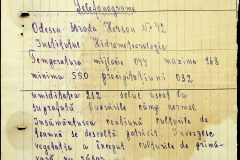 Telefonograma
Odessa Strada Herson Nr 42
Institutul Hidrometeorologic
Temperatura mijlocie 074 maxima 168
minima 550 precipitatiuni 032
umiditatea 212 solul uscat la
suprafață lucrările câmp normal
Însămânțarea continuă culturile de
toamnă se desvoltă potrivit
vegetația a început culturile de primă-